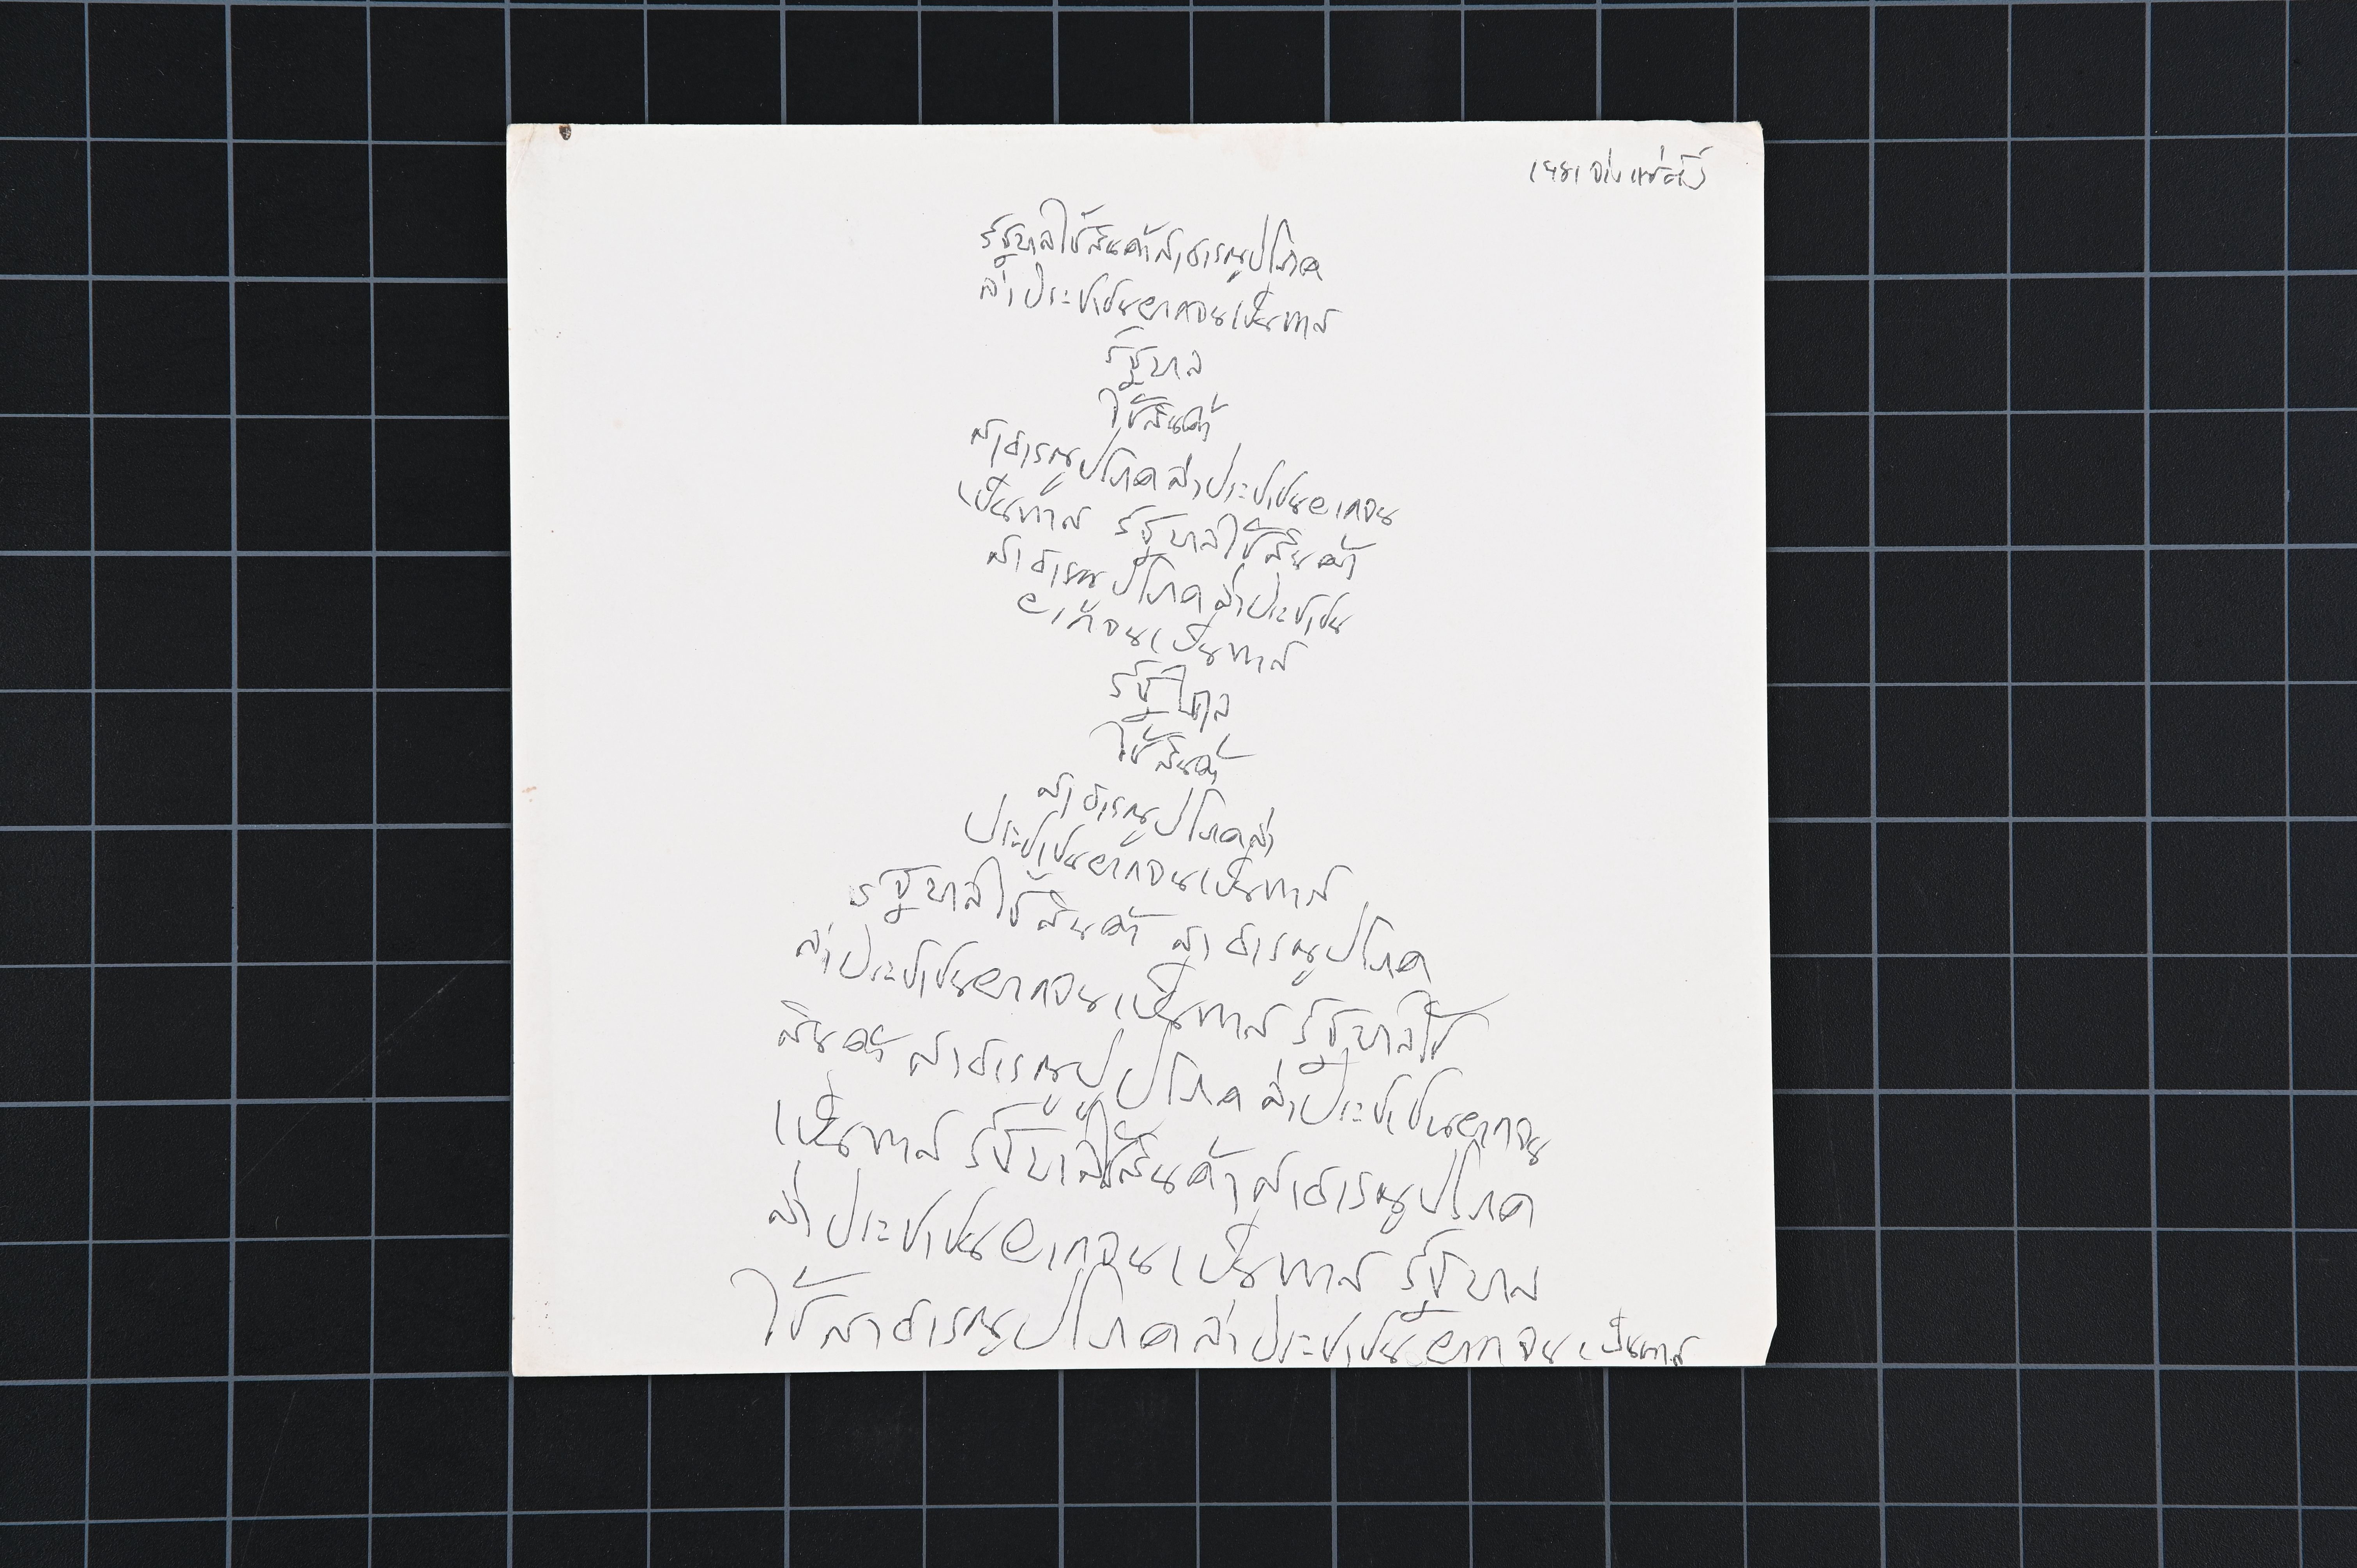 จ่าง แซ่ตั้ง
รัฐบาลใช้สินค้าสาธารณูปโภค
ล่าประชาชนยากจนเป็นทาส
รัฐบาล
ใช้สินค้า
สาธารณูปโภคล่าประชาชนยากจน
เป็นทาส รัฐบาลใช้สินค้า
สาธารณูปโภคล่าประชาชน
ยากจนเป็นทาส
รัฐบาล
ใช้สินค้า
สาธารณูปโภคล่า
ประชาชนยากจนเป็นทาส
รัฐบาลใช้สินค้า สาธารณูปโภค
ล่าประชาชนยากจนเป็นทาส รัฐบาลใช้
สินค้า สาธารณูปโภค ล่าประชาชนยากจน
เป็นทาส รัฐบาลใช้สินค้า สาธารณูปโภค
ล่าประชาชนยากจนเป็นทาส รัฐบาล
ใช้สาธารณูปโภคล่าประชาชนยากจนเป็นทาส